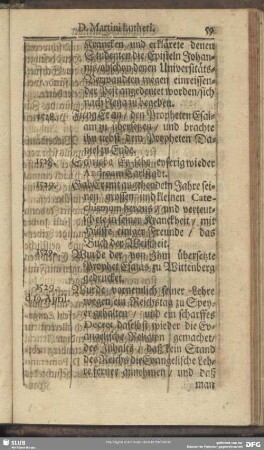 D. Martini Lutheri. 59
Krancken und erklärete denen
Studenten die Episteln Johan-
nis, welchen denen Universitäts-
Verwandten wegen einreissen-
der Pest angedeutet worden, sich
nach Jena zu begeben.
1528. Fieng Er an, den Propheten Esai-
am zu übersetzen, und brachte
ihn nebst dem Propheten Da-
niel zu Ende.
1528. Schrieb Er sehr eyferig wieder
Andream Carlstadt.
1529. Gab er mit angehendem Jahre sei-
nen grossen und kleinen Cate-
chismum heraus, und verteut-
schete in seiner Kranckheit, mit
Hülffe einiger Freunde, das
Buch der Weißheit.
1529. Wurde der von Ihm übersetzte
Prophet Esaias zu Wittenberg
gedrucket.
1529. Wurde vornemlich seiner Lehre
wegen, ein Reichstag zu Spey-
er gehalten, und ein scharffes
Decret daselbst wieder die Ev-
angelische Religion gemachet,
des Inhalts, daß kein Stand
des Reichs die Evangelische Leh-
re ferner annehmen, und daß
man
SLUB
DFG